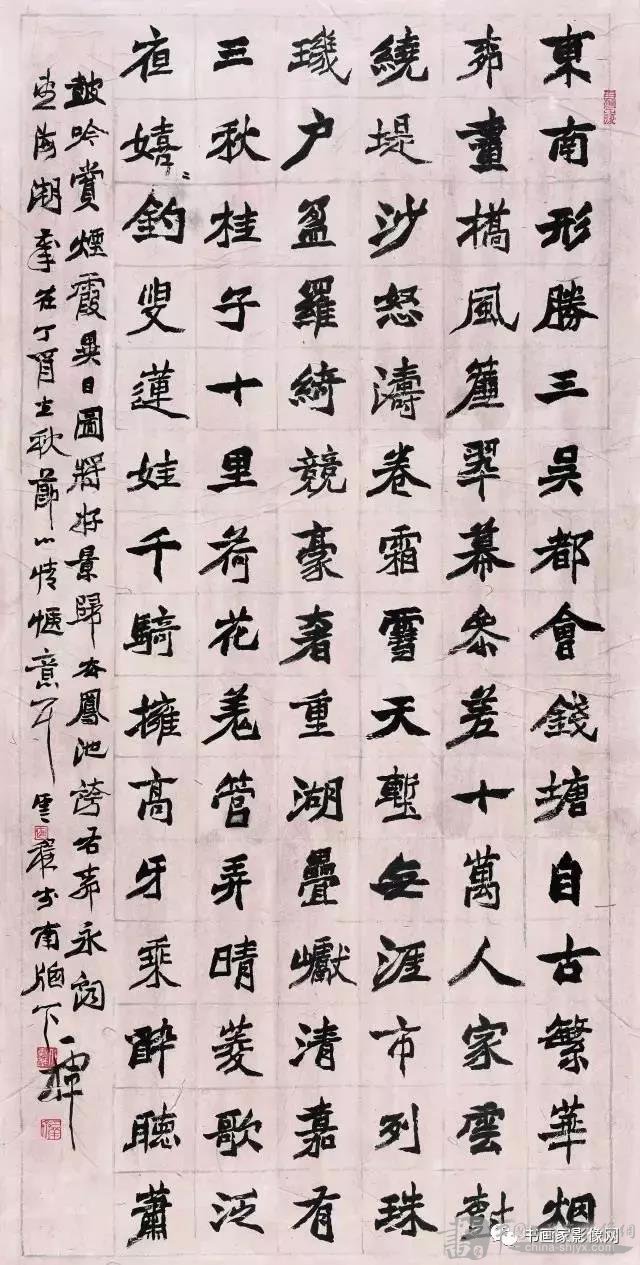 東南形勝三吳都會錢塘自古繁華烟
柳畫橋風簾翠幕參差十萬人家雲樹
繞堤沙怒濤卷霜雪天塹無涯市列珠
璣户盈羅綺競豪奢重湖疊巘清嘉有
三秋桂子十里荷花羌管弄晴菱歌泛
夜嬉〻釣叟蓮娃千騎擁高牙乘醉聽蕭
鼓吟賞煙霞異日圖將好景歸去鳳池誇右柳永詞
望海潮丁酉立秋節
书画家影像网
china-shjyx.com